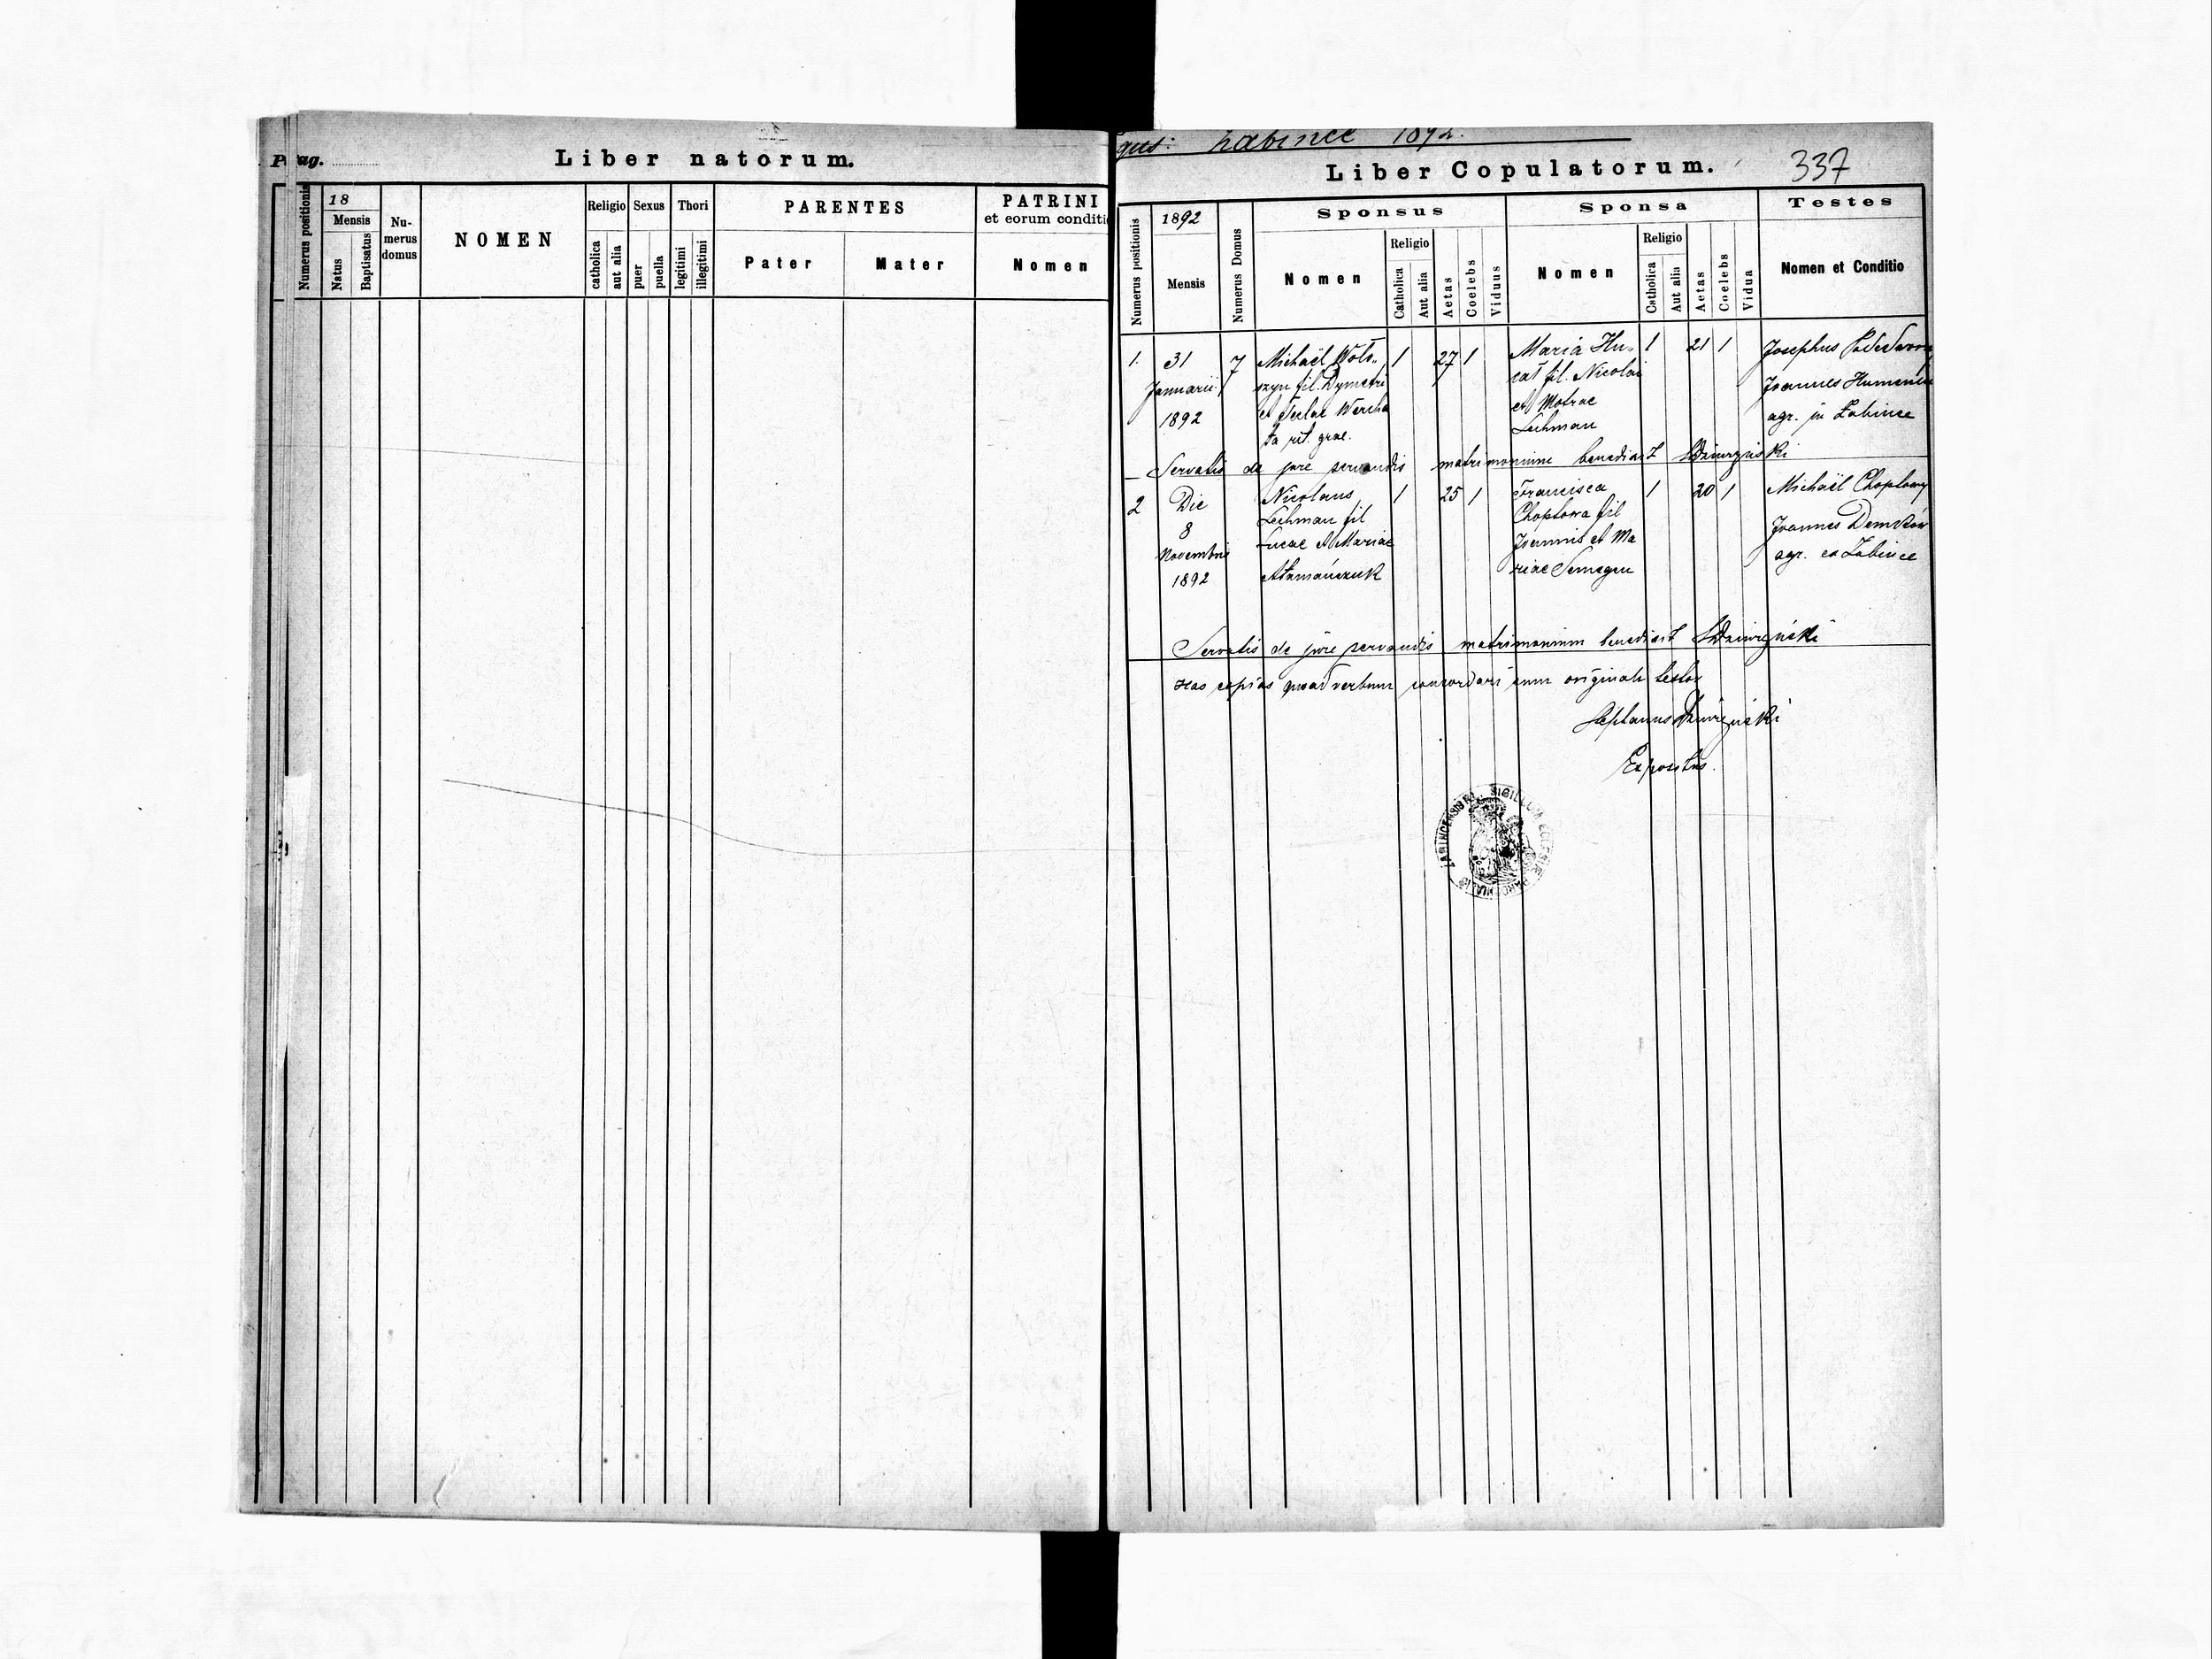 Pag.
Liber natorum.
Numerus positionis
18
Mensis
Natus
Baptisatus
Nu-
merus
domus
NOMEN
Religio
catholica
aut alia
Sexus
puer
puella
Thori
legitimi
illegitimi
PARENTES
Pater
Mater
PATRINI
et eorum conditi
Nomen
gus: Łabince 1892.
Liber Copulatorum.
337
Numerus positionis
1892
Mensis
Numerus Domus
Sponsus
Nomen
Religio
Catholica
Aut alia
Aetas
Coelebs
Viduus
Sponsa
Nomen
Religio
Catholica
Aut alia
Aetas
Coelebs
Vidua
Testes
Nomen et Conditio
1. 31 7 Michaël Woło„ 1 27 1 Maria Hu„ 1 21 1 Josephus
Januarii szyn fil. Dymetri cat fil. Nicolai Joannes Humeniu
1892 et Teclae Wercho et Motrae agr. in Łabince
ta rit. grae. Lechman
Servatis de jure servandis matrimonium benedixit Dziurzyński
2 Die Nicolaus 1 25 1 Francisca 1 20 1 Michaël Choptowy
8 Lechman fil Choptowa fil Joannes Demków
Novembris Lucae et Mariae Joannis et Ma agr. ex Łabince
1892 Atamańczuk riae Semegen
Servatis de jure servandis matrimonium benedixit Dziurzyński
Has copias quoad verbum concordari cum originali testor
Stephanus Dziurzyński
Expositus.
SIGILLUM ECCLESIAE PAROCHIALIS ŁABINCENSIS